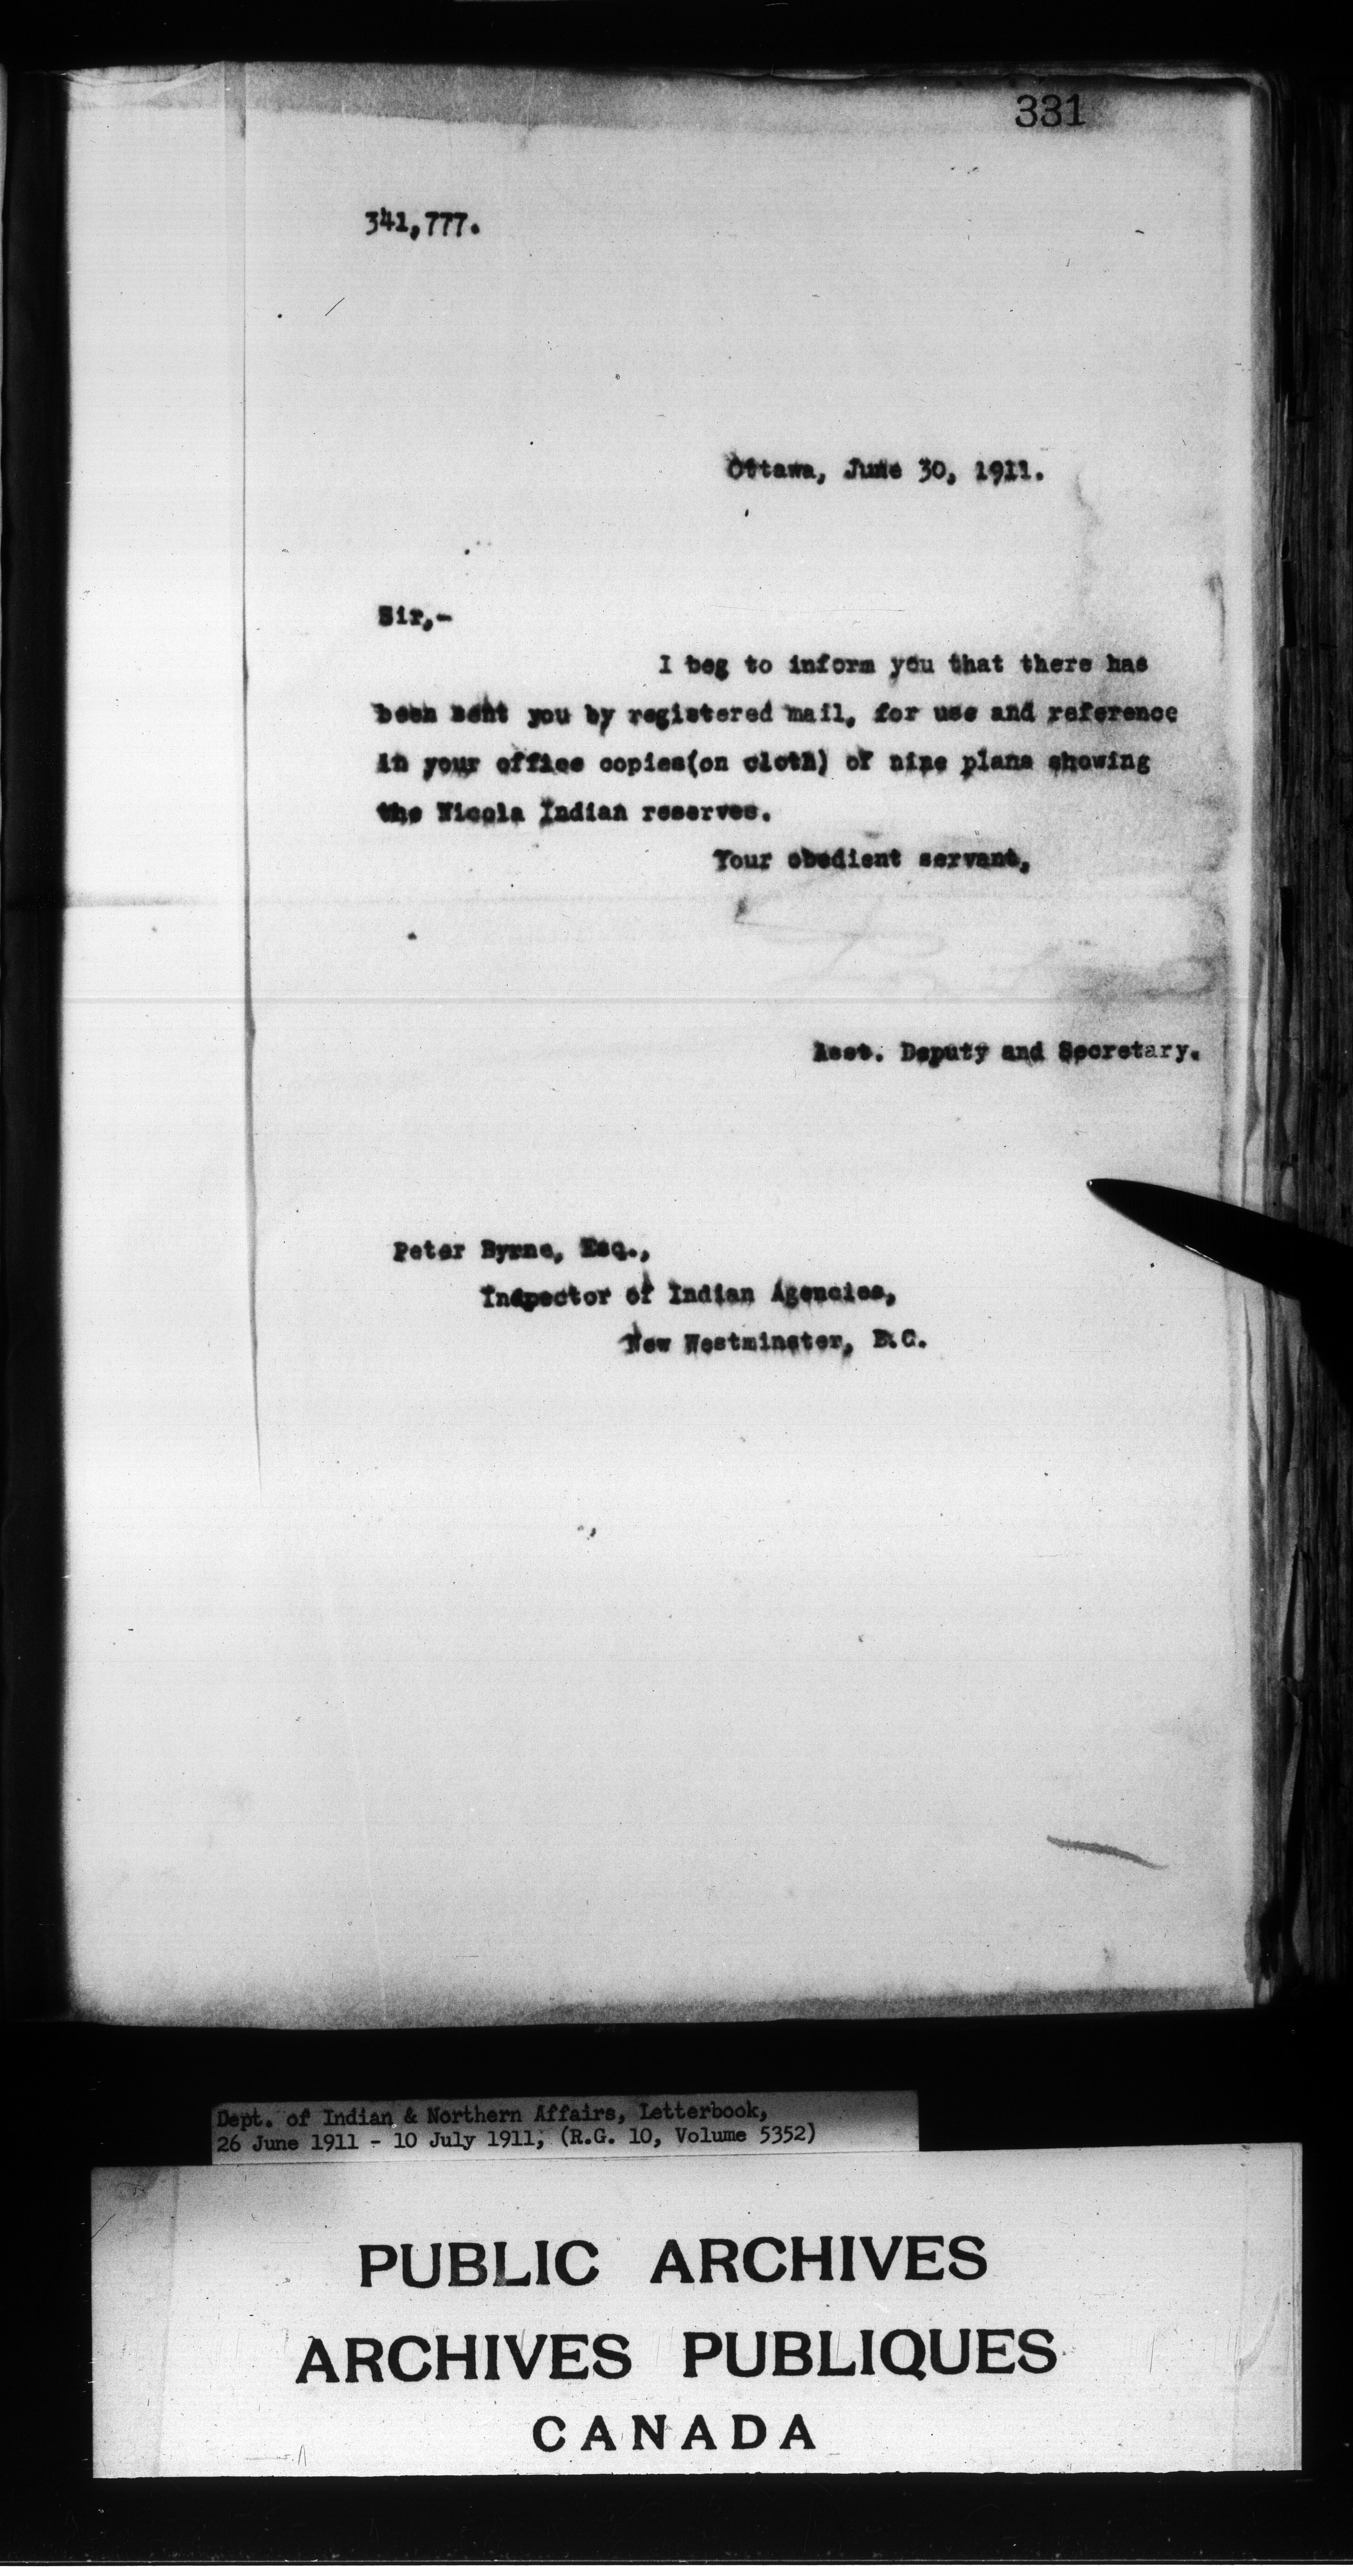 331
341,777.
Ottawa, June 30, 1911.
Sir,-
I beg to inform you that there has
been sent you by registered mail, for use and reference
in your office copies(on cloth) of nine plans showing
the Nicola Indian reserves.
Your obedient servant,
Asst. Deputy and Secretary.
Peter Byrne, Esq.,
Inspector of Indian Agencies,
New Westminster, B.C.
Dept. of Indian & Northern Affairs, Letterbook,
26 June 1911 - 10 July 1911, (R.G. 10, Volume 5352)
PUBLIC ARCHIVES
ARCHIVES PUBLIQUES
CANADA